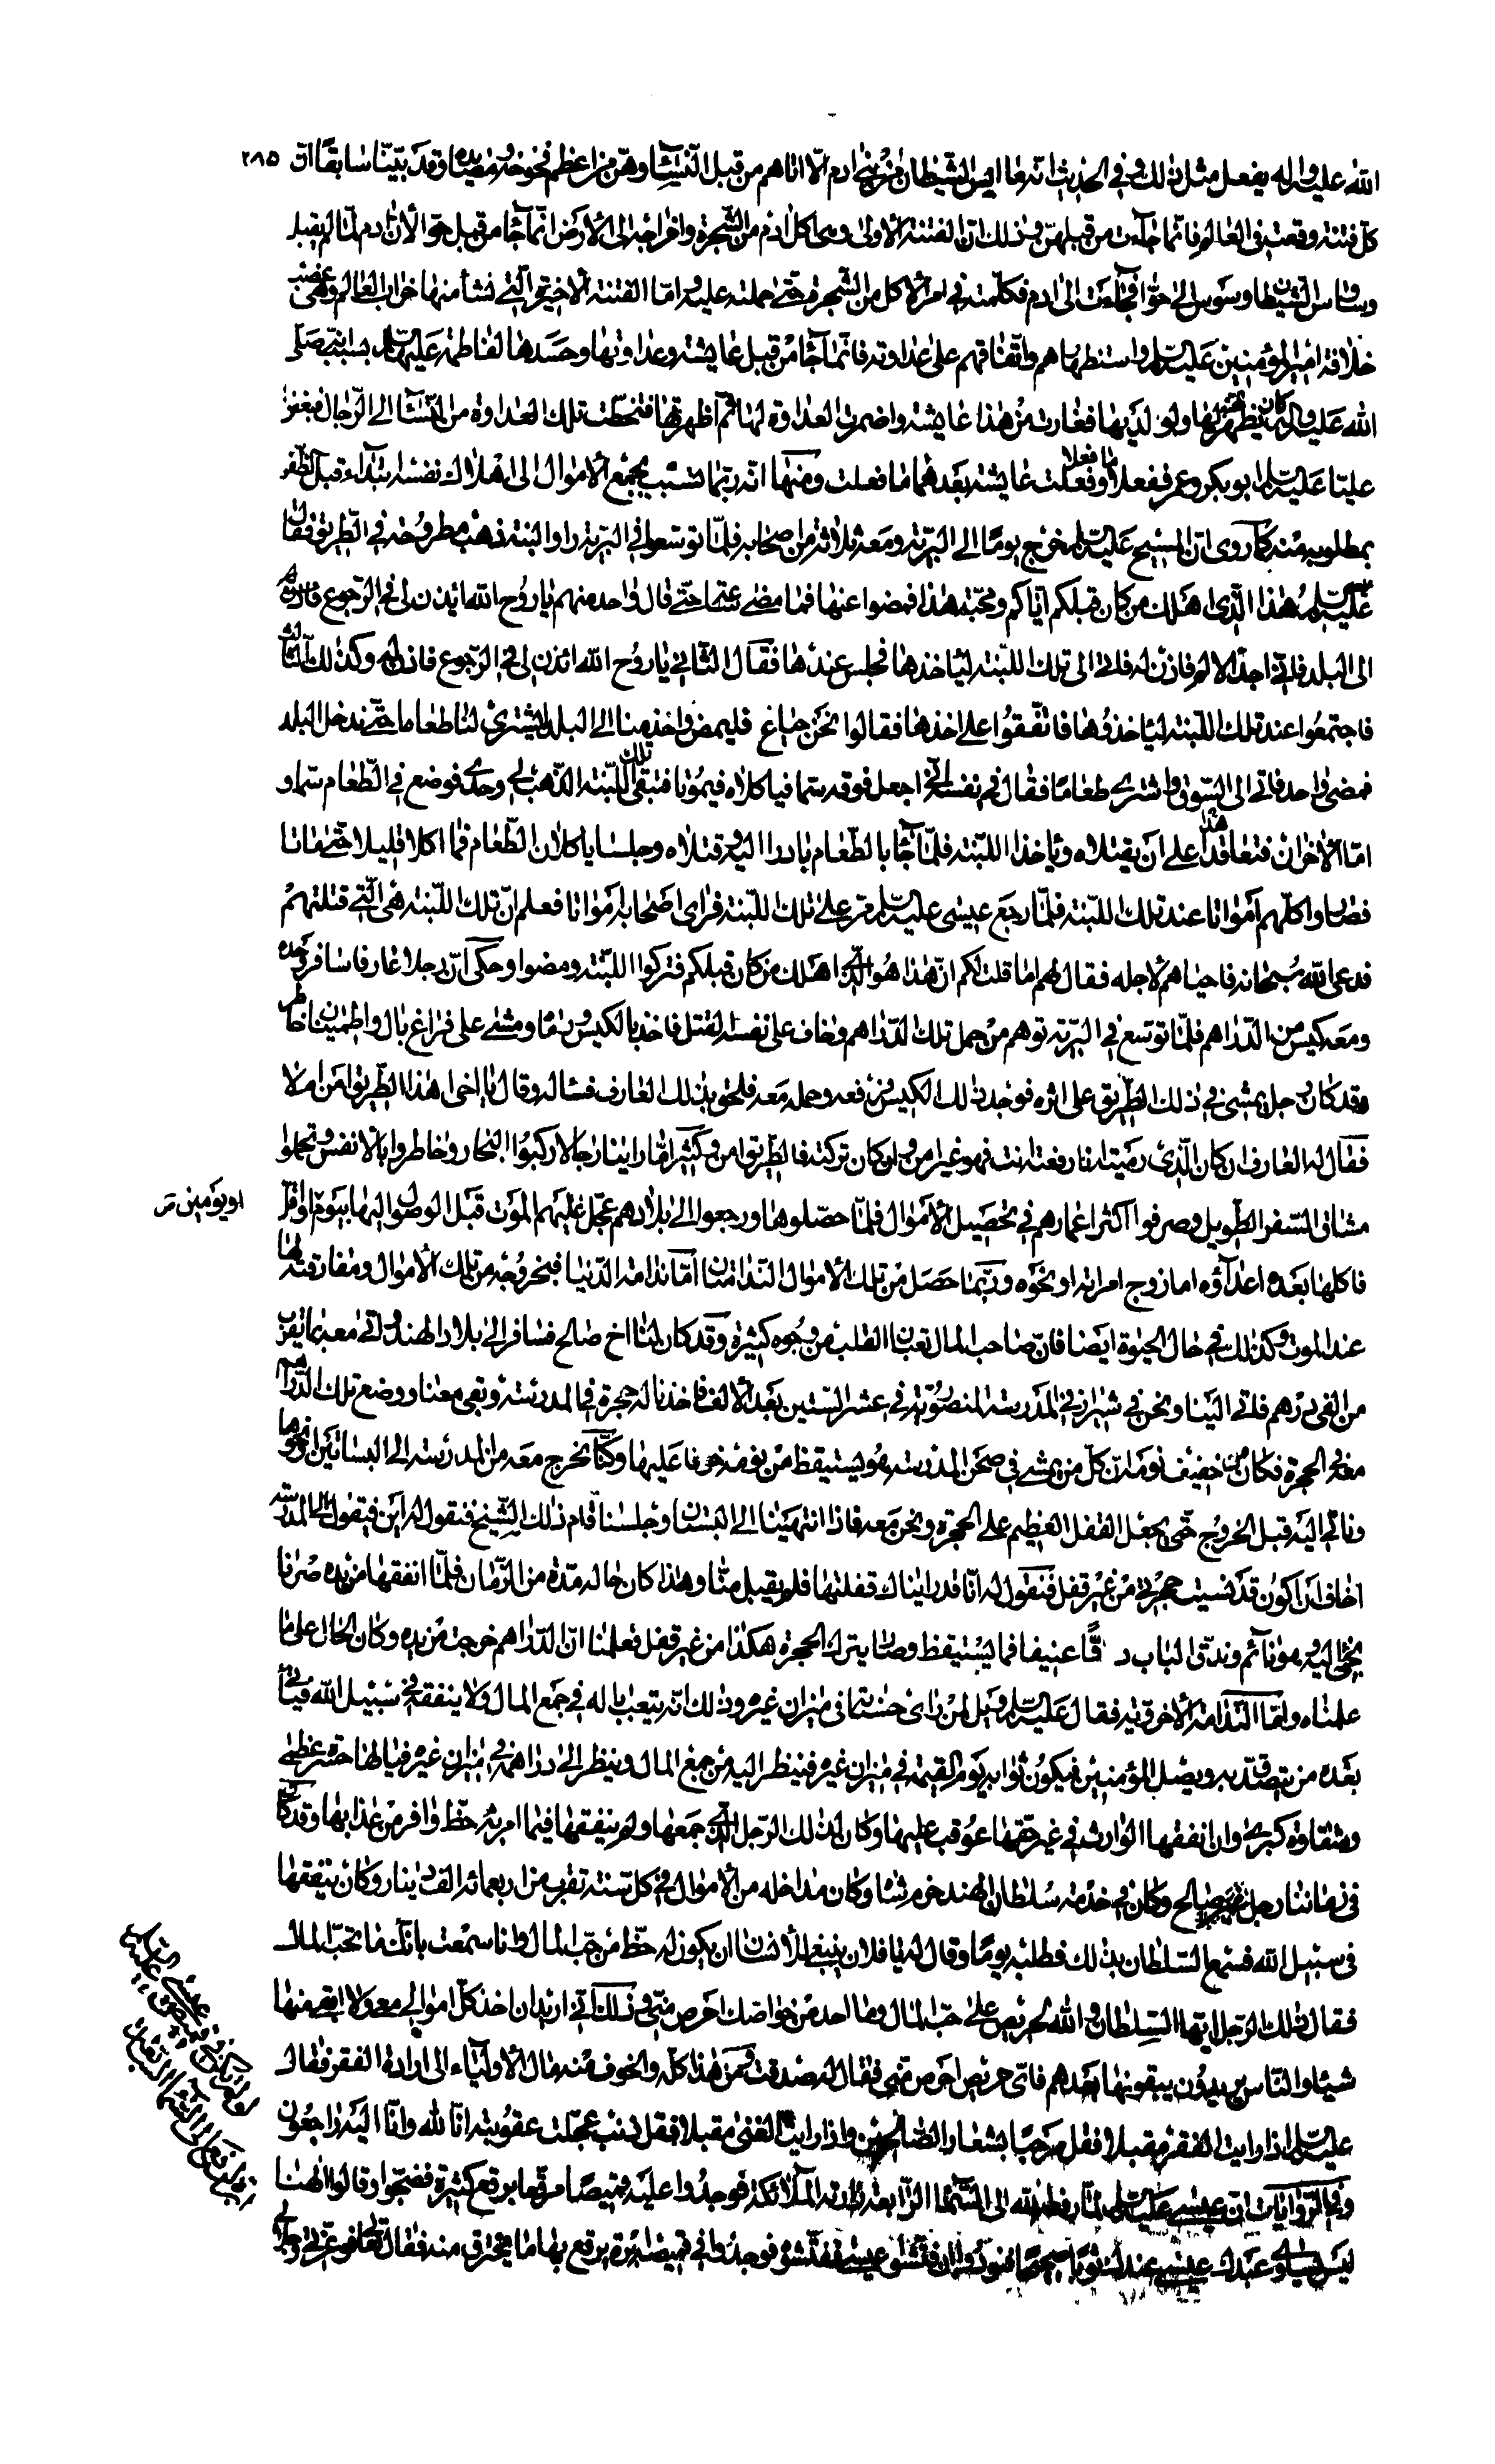 ٢٨٥
الله عليه واله يفعل مثل ذلك وفي الحديث انه ما ايس الشيطان من بني ادم الا اتاهم من قبل النساء وهن من اعظم فخوخه ومصايده وقد بينا سابقا ان
كل فتنة وقعت في العالم فانما جاءت من قبلهن وذلك ان الفتنة الاولى وهي اكل ادم من الشجرة واخراجه الى الارض انما جاء من قبل حوا لان ادم لما لم يقبل
وسواس الشيطان وسوس الى حوا فجاءت الى ادم فكلمته في امر الاكل من الشجرة حتى حملته عليه واما الفتنة الاخيرة التي نشأ منها خراب العالم وهي غصب
خلافة امير المؤمنين عليه السلام واستظهارهم واتفاقهم على عداوته فانما جاء من قبل عايشة وعداوتها وحسدها لفاطمة عليها السلام بسبب ان النبي صلى
الله عليه واله كان يظهر المحبة لها ولولديها فغارت من هذا عايشة واضمرت العداوة لها ثم اظهرتها فتخطت تلك العداوة من النساء الى الرجال فبغض
عليا عليه السلام ابو بكر وعمر ففعلا ما فعلا وفعلت عايشة بعدهما ما فعلت ومنها انه ربما تسبب بجمع الاموال الى اهلاك نفسه ابتداء قبل الظفر
بمطلوبه منه كما روى ان المسيح عليه السلام خرج يوما الى البرية ومعه ثلاثة من اصحابه فلما توسعوا في البرية راوا لبنة ذهب مطروحة في الطريق فقال
عليه السلام هذا الذي اهلك من كان قبلكم اياكم ومحبة هذا فمضوا عنها فما مضى ساعة حتى قال واحد منهم يا روح الله ائذن لي في الرجوع
الى البلد فاني اجد الالم فاذن له فاتى الى تلك اللبنة ليأخذها فجلس عندها فقال الثاني يا روح الله ائذن لي في الرجوع فاذن له وكذلك الثالث
فاجتمعوا عند تلك اللبنة ليأخذوها فاتفقوا على اخذها فقالوا نحن جياع فليمض واحد منا الى البلد ليشتري لنا طعاما حتى ندخل البلد
فمضى واحد فاتى الى السوق واشترى طعاما فقال في نفسه اني اجعل فوقه سما فيأكلاه فيموتا فتبقى تلك اللبنة الذهب لي وحدي فوضع في الطعام سما و
اما الاخران فتعاقدا على ان يقتلاه ويأخذا اللبنة فلما جاء بالطعام بادرا اليه وقتلاه وجلسا يأكلان الطعام فما اكلا قليلا حتى ماتا
فصاروا كلهم امواتا عند تلك اللبنة فلما رجع عيسى عليه السلام مر على تلك اللبنة فراى اصحابه امواتا فعلم ان تلك اللبنة هي التي قتلتهم
فدعى الله سبحانه فاحياهم لاجله فقال لهم اما قلت لكم ان هذا هو الذي اهلك من كان قبلكم فتركوا اللبنة ومضوا وحكى ان رجلا عارفا سافر وحده
ومعه كيس من الدراهم فلما توسع في البرية توهم من حمل تلك الدراهم وخاف على نفسه القتل فاخذ بالكيس ورماه ومشى على فراغ بال واطمينان خاطر
وقد كان رجل يمشي في ذلك الطريق على اثره فوجد ذلك الكيس فرفعه وحمله معه فلحق بذلك العارف فسأله وقال يا اخى هذا الطريق امن ام لا
فقال له العارف ان كان الذي رميته انا رفعته انت فهو غير امن وان كان تركته فالطريق امن وكثيرا ما راينا رجالا ركبوا البحار وخاطروا بالانفس وتحملوا
مشاق السفر الطويل وصرفوا اكثر اعمارهم في تحصيل الاموال فلما حصلوها ورجعوا الى بلادهم عجل عليهم الموت قبل الوصول اليها بيوم او اقل
او يومين ص
فاكلها بعده اعداؤه اما زوج امراته او نحوه وربما حصل من تلك الاموال الندامتان اما ندامة الدنيا فبخروجه من تلك الاموال ومفارقته لها
عند الموت وكذلك في حال الحيوة ايضا فان صاحب المال تعبان القلب من وجوه كثيرة وقد كان لنا اخ صالح فسافر الى بلاد الهند واتى معه بما يقرب
من الفي درهم فاتى الينا ونحن في شيراز في المدرسة المنصورية في عشر الستين بعد الالف فاخذنا له حجرة في المدرسة وبقى معنا ووضع تلك الدراهم
معه في الحجرة فكان من خفيف نومه ان كل من يمشي في صحن المدرسة هو يستيقظ من نومه خوفا عليها وكنا نخرج معه من المدرسة الى البساتين ونحوها
وناتي اليه قبل الخروج حتى يجعل القفل العظيم على الحجرة ونحن معه فاذا انتهينا الى البستان وجلسنا قام ذلك الشيخ فنقول له اين فيقول الى المدرسة
اخاف ان اكون قد نسيت حجرتي من غير قفل فنقول له انا قد رايناك قفلتها فلم يقبل منا وهذا كان حاله مدة من الزمان فلما انفقها من يده صرنا
نجئ اليه وهو نائم وندق الباب دقا عنيفا فما يستيقظ وصار يترك الحجرة هكذا من غير قفل فعلمنا ان الدراهم خرجت من يده وكان الحال على ما
علمناه واما الندامة الاخروية فقال عليه السلام ويل لمن راى حسناته في ميزان غيره وذلك انه يتعب باله في جمع المال ولا ينفقه في سبيل الله فيأتي
بعده من يتصدق به ويصل المؤمنين فيكون ثوابه يوم القيمة في ميزان غيره فينظر اليه من جمع المال وينظر الى دراهمه في ميزان غيره فيالها حسرة عظمى
وشقاوة كبرى وان انفقها الوارث في غير حقها عوقب عليها وكان لذلك الرجل الذي جمعها ولم ينفقها فيما امر به حظ وافر من عذابها وقد كان
في زماننا رجل فقير صالح وكان في خدمة سلطان الهند خرم شاه وكان مداخله من الاموال في كل سنة تقرب من اربعمائة الف دينار وكان ينفقها
في سبيل الله فسمع السلطان بذلك فطلبه يوما وقال له يا فلان ينبغي للانسان ان يكون له حظ من حب المال وانا سمعت بانك ما تحب المال
فقال ذلك الرجل ايها السلطان والله لحريص على حب المال وما احد من خواصك احرص مني وذلك اني اريد ان اخذ كل اموالي معي ولا ابقي منها
شيئا والناس يريدون يبقونها بعدهم فانا حريص احرص منهم فقال له صدقت ومن هذا كله والخوف منه مال الاولياء الى ارادة الفقر فقال
عليه السلام اذا رايت الفقر مقبلا فقل مرحبا بشعار الصالحين واذا رايت الغنى مقبلا فقل ذنب عجلت عقوبته انا لله وانا اليه راجعون
وفي الروايات ان عيسى عليه السلام لما رفعه الله الى السماء الرابعة زارته الملائكة فوجدوا عليه قميصا مرقعا برقع كثيرة فضجوا وقالوا الهنا
ليس يسوى عبدك عيسى عندك ثوبا صحيحا فنودوا ان فتشوا عيسى ففتشوه فوجدوا في قميصه ابرة يرقع بها ما يتخرق منه فقال تعالى وعزتي وجلالي